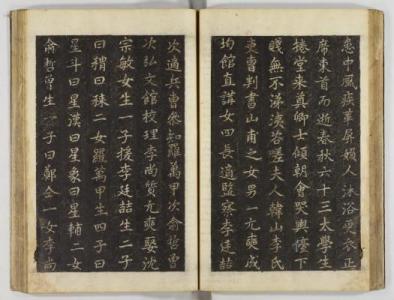 忽中風疾革屏婦人沐浴更衣正
席東首而逝春秋六十三太學生
捲堂來奠卿士傾朝會哭輿儓下
賤無不涕洟咨嗟夫人韓山李氏
吏曹判書山甫之女男一元奭成
均館直講女四長適監察李廷喆
次適兵曹參知羅萬甲次兪哲曾
次弘文館校理李尙質元奭娶沈
宗敏女生一子援李廷喆生二子
曰䅏曰秣二女羅萬甲生四子曰
星斗曰星漢曰星象曰星輔二女
兪哲曾生一子曰鄭金一女李尙